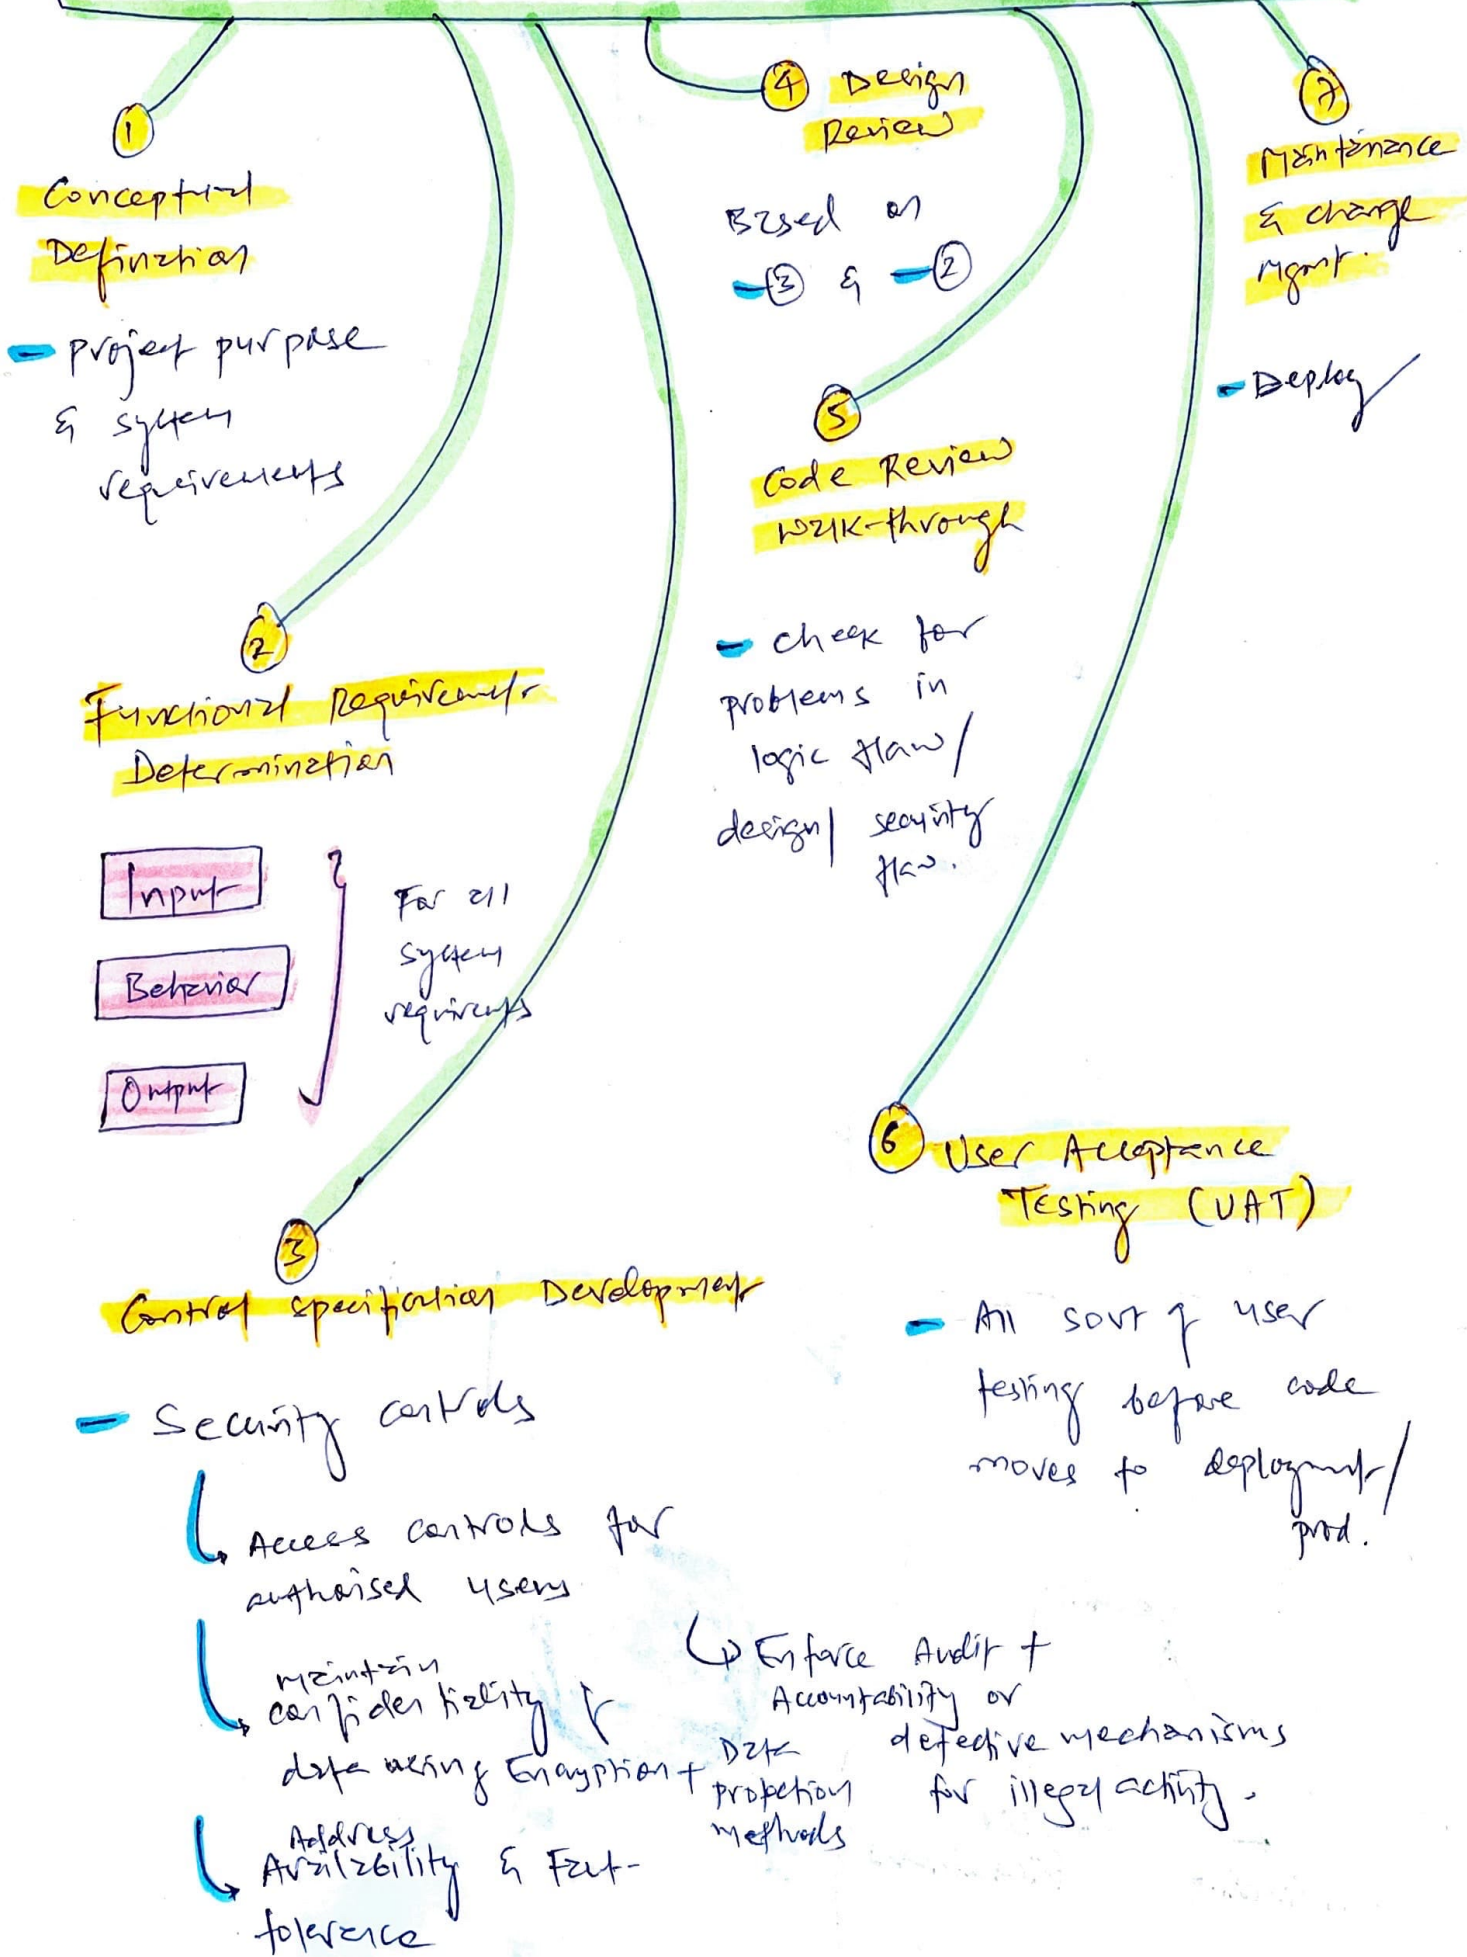 1
Conceptual
Defination
- Project purpose
& system
requirements
2
Functional Requirements
Determination
Input
Behavior
Output
For all
system
requirements
3
Control specification Development
- Security controls
Access controls for
authorised users
maintain
confidentiality of
data using Encryption +
Data
protection
methods
Address
Availability & Fault-
tolerance
Enforce Audit +
Accountability or
defective mechanisms
for illegal activity.
4 Design
Review
Based on
- 3 & - 2
5
Code Review
Walk-through
- check for
problems in
logic flaw/
design/ security
flaw.
6 User Acceptance
Testing (UAT)
- All sort of user
testing before code
moves to deployment/
prod.
7
Maintenance
& change
Mgmt.
- Deploy